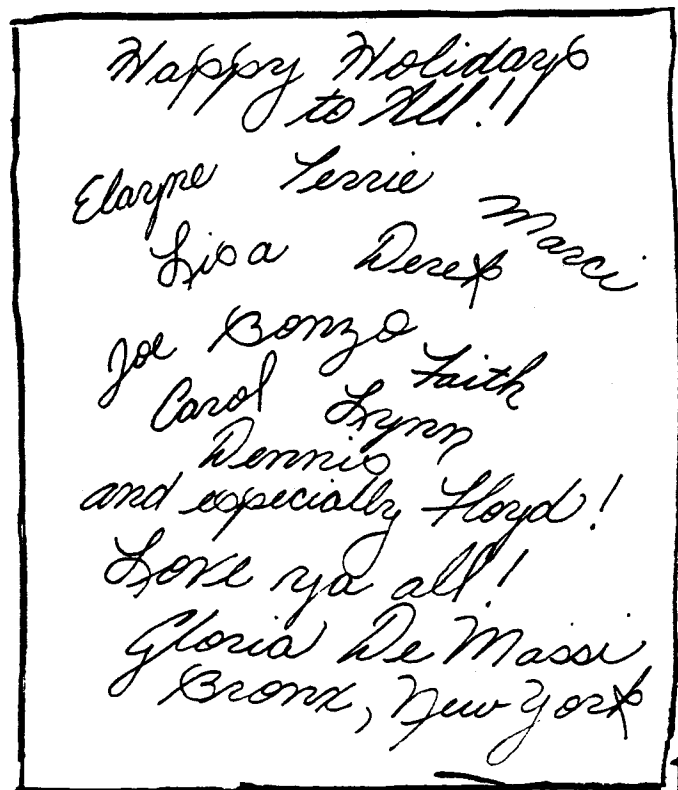 Happy Holidays
to All!!
Elayne Terrie Marci
Lisa Derek
Joe Bonzo
Carol Lynn Faith
Dennis
and especially Floyd!
Love ya all!
Gloria De Massi
Bronx, New York